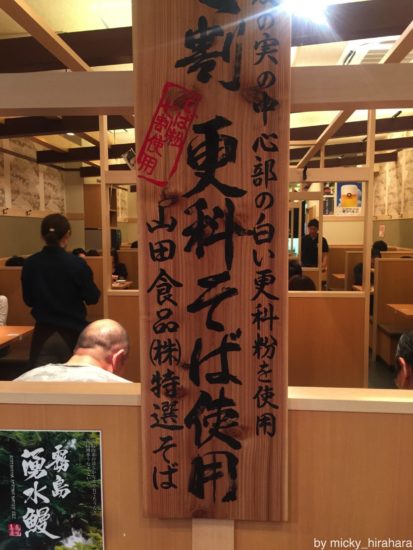 の実の中心部の白い更科粉を使用
割 更科そば使用
そば粉
割使用
山田食品㈱特選そば
霧島
湧水鰻
by micky_hirahara